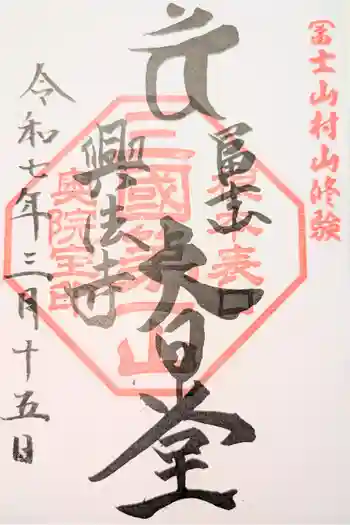 冨士山村山修験
富士山
大日堂
興法寺
三國第一山
奥院宝印
令和七年三月十五日